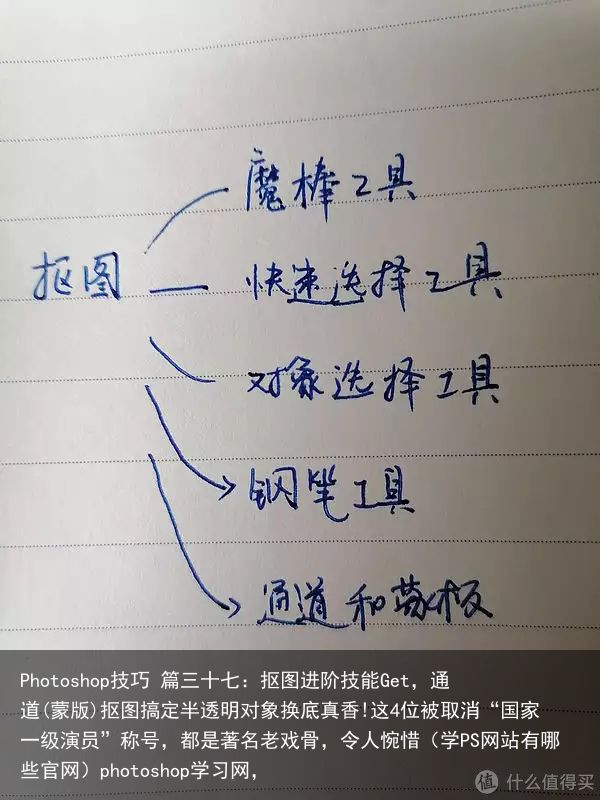 魔棒工具
抠图
快速选择工具
对象选择工具
钢笔工具
通道和蒙板
Photoshop技巧 篇三十七: 抠图进阶技能Get, 通
道(蒙版)抠图搞定半透明对象换底真香!这4位被取消“国家
一级演员”称号, 都是著名老戏骨, 令人惋惜 (学PS网站有哪
些官网) photoshop学习网,
值 什么值得买